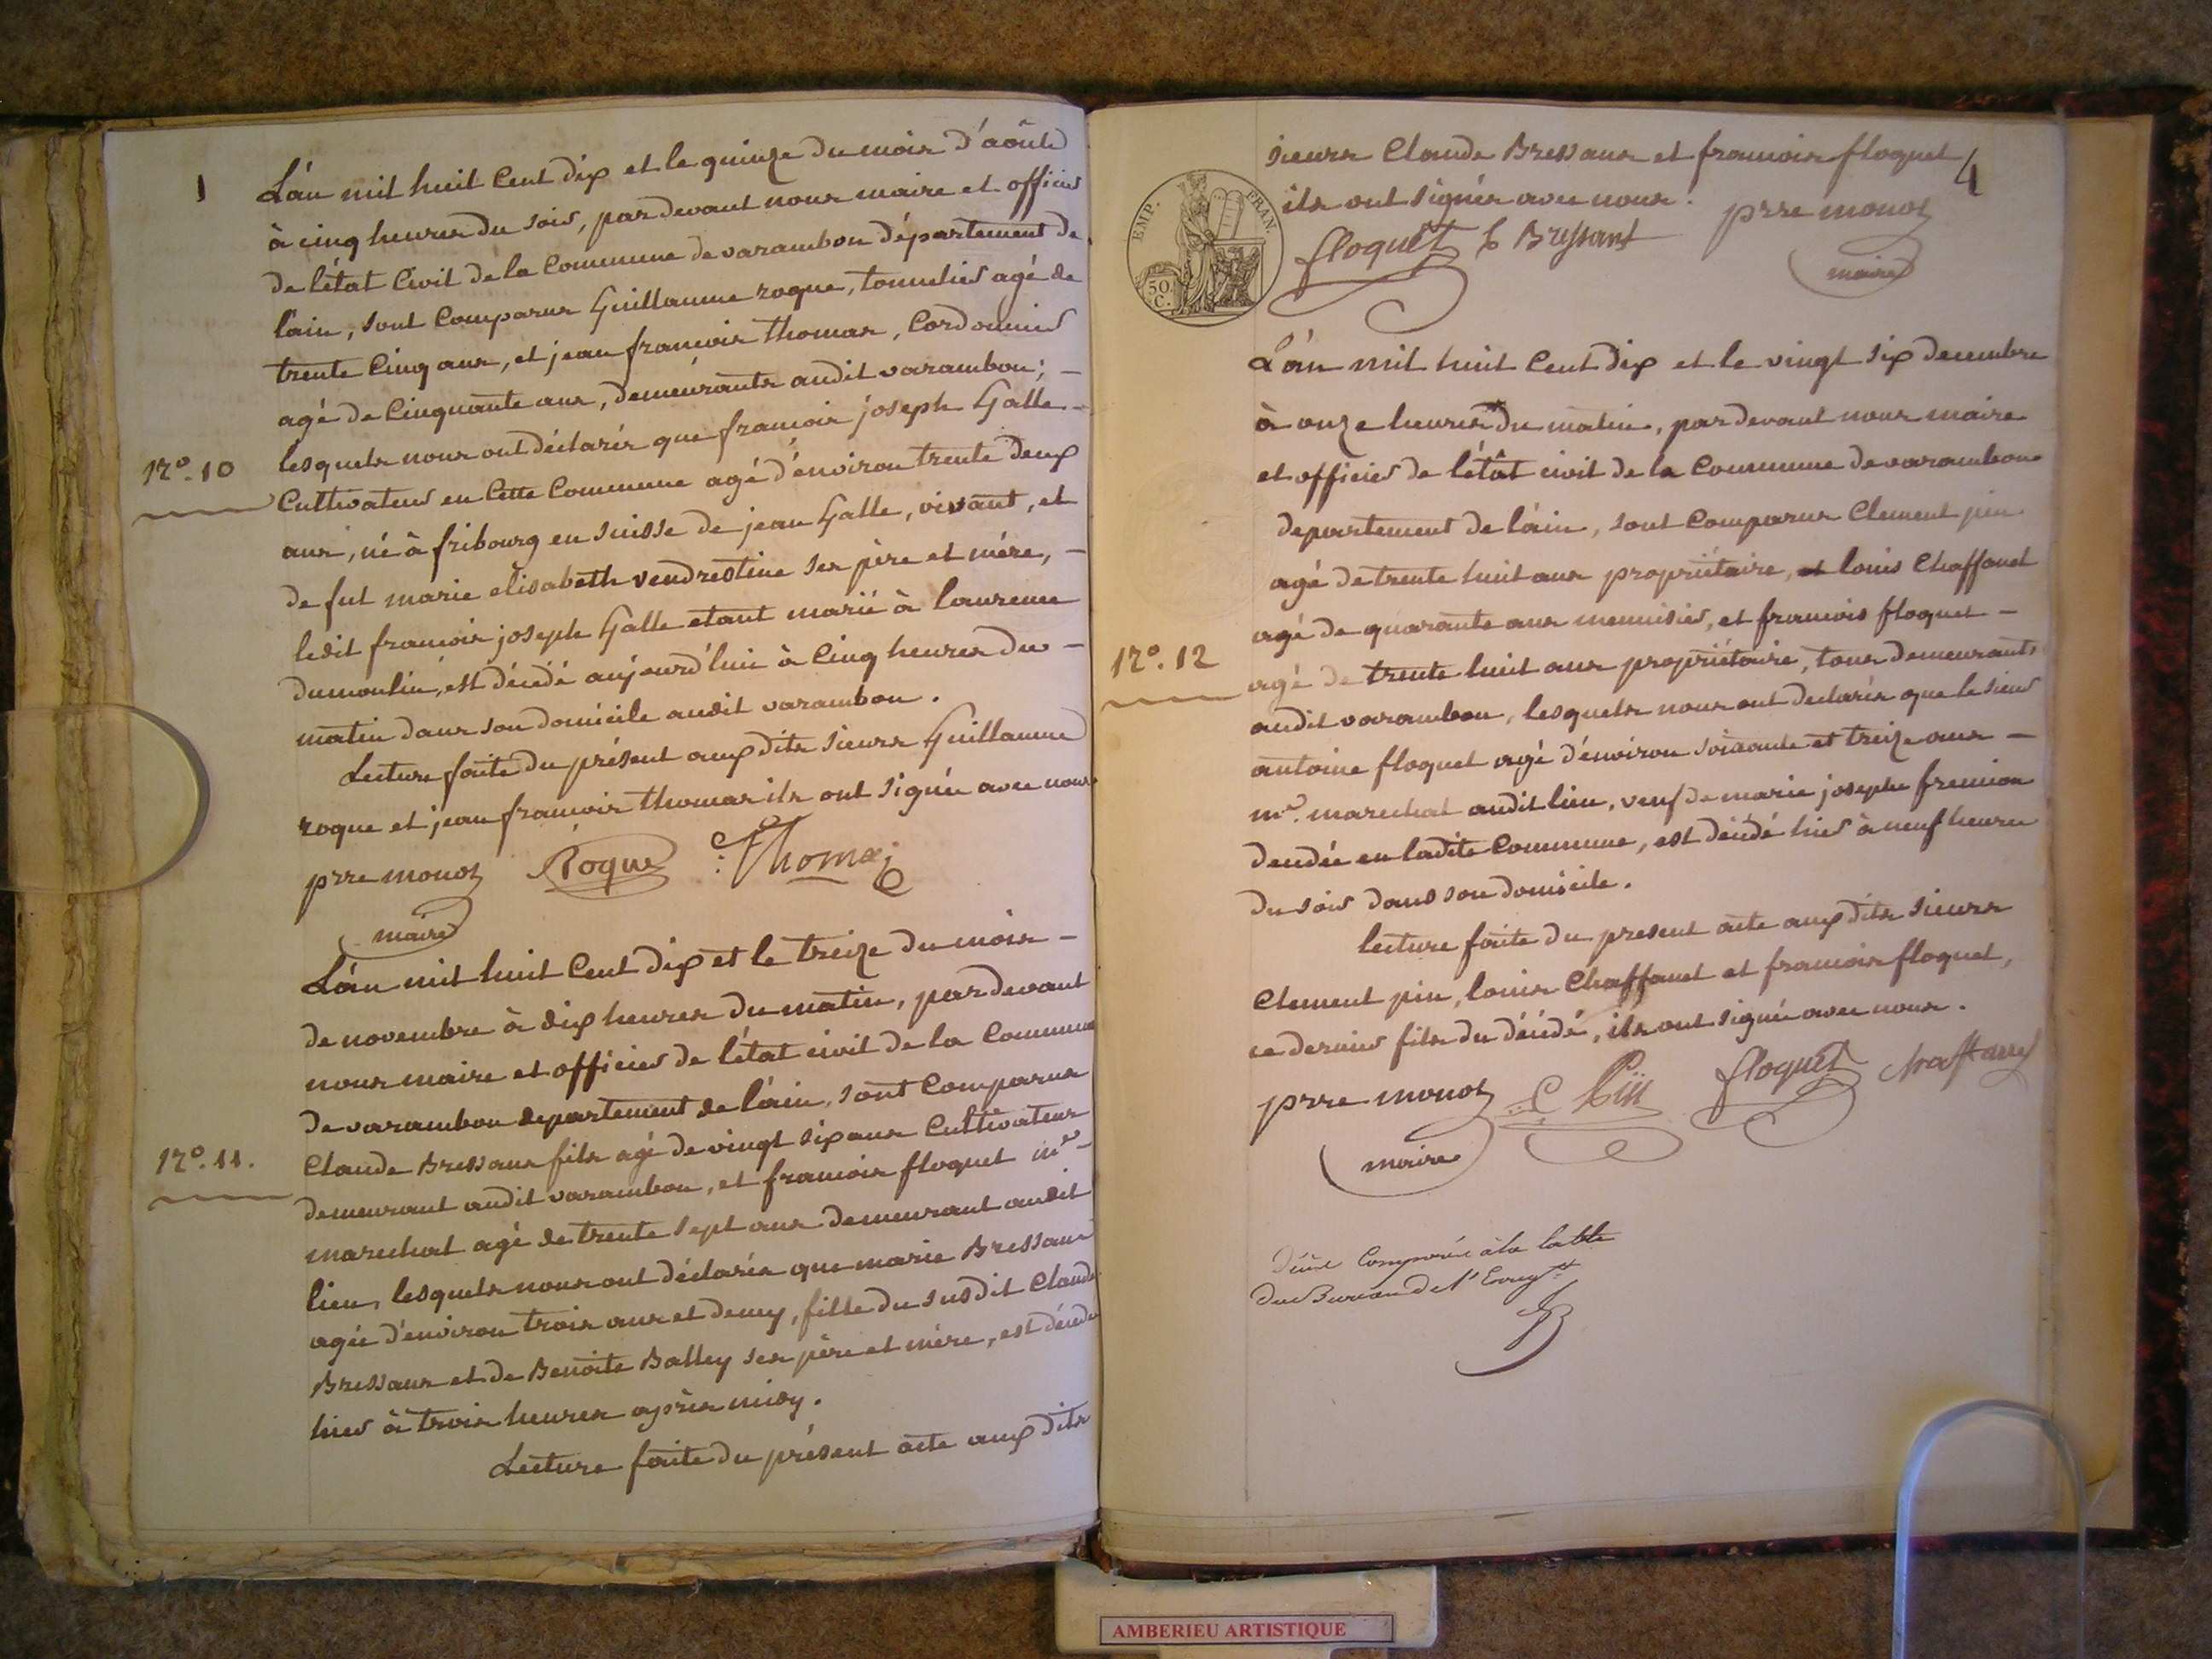 1
L'án mil huit Cent dix et le quinze du mois d'aôut
à cinq heures du soir, pardevant nous maire et officier
de l'état Civil de la Commune de varambon département de
l'ain, sont Comparus Guillaume roque, tonnelier agé de
trente Cinq ans, et jean francois thomas, Cordonnier
agé de Cinquante ans, demeurants audit varambon; -
N.º 10
lesquels nous ont déclarés que francois joseph Galle -
Cultivateur en Cette Commune agé d'énviron trente deux
ans, né à fribourg en suisse de jean Galle, vivant, et
de fut marie elisabeth vendrestine ses père et mére, -
ledit francois joseph Galle etant marié à laurence
dumoulin, est décédé aujourd'hui à Cinq heures du -
matin dans son domicile audit varambon.
Lecture faite du présent aux dits sieurs Guillaume
roque et jean francois thomas ils ont signés avec nous.
prre monoz Roque Thomas
maire
L'án mil huit Cent dix et le treize du mois -
de novembre à dix heures du matin, pardevant
nous maire et officier de l'état civil de la Commune
de varambon departement de l'ain, sont Comparus
N.º 11.
Claude Bressans fils agé de vingt six ans Cultivateur
demeurant audit varambon, et francois floquet m.e -
marechal agé de trente sept ans demeurant audit
lieu, lesquels nous ont déclarés que marie Bressans
agée d'énviron trois ans et demy, fille du susdit Claude
Bressans et de Benoite Balley ses père et mére, est décédé
hier à trois heures après midy.
Lecture faite du présent acte aux dits
4
sieurs Claude Bressans et francois floquet
ils ont signés avec nous.
EMP. FRAN.
50 C.
floquet C Bressant prre monoz
maire
L'án mil huit Cent dix et le vingt six decembre
à onze heures du matin, pardevant nous maire
et officier de l'étât civil de la Commune de varambon
departement de l'ain, sont Comparus Clement pin
agé de trente huit ans propriétaire, et louis Chaffanet
agé de quarante ans menuisier, et francois floquet -
N.º 12
agé de trente huit ans propriétaire, tous demeurants
audit varambon, lesquels nous ont declarés que le sieur
antoine floquet agé d'énviron soixante et treize ans -
m.e marechal audit lieu, veuf de marie josephe fremion
décédée en ladite Commune, est décédé hier à neuf heures
du soir dans son domicile.
lecture faite du present acte aux dits sieurs
Clement pin, louis Chaffanet et francois floquet,
ce dernier fils du décédé, ils ont signés avec nous.
prre monoz C Pin floquet chaffanet
maire
Comparée à la table
du Bureau de l'Enreg.t
AMBERIEU ARTISTIQUE